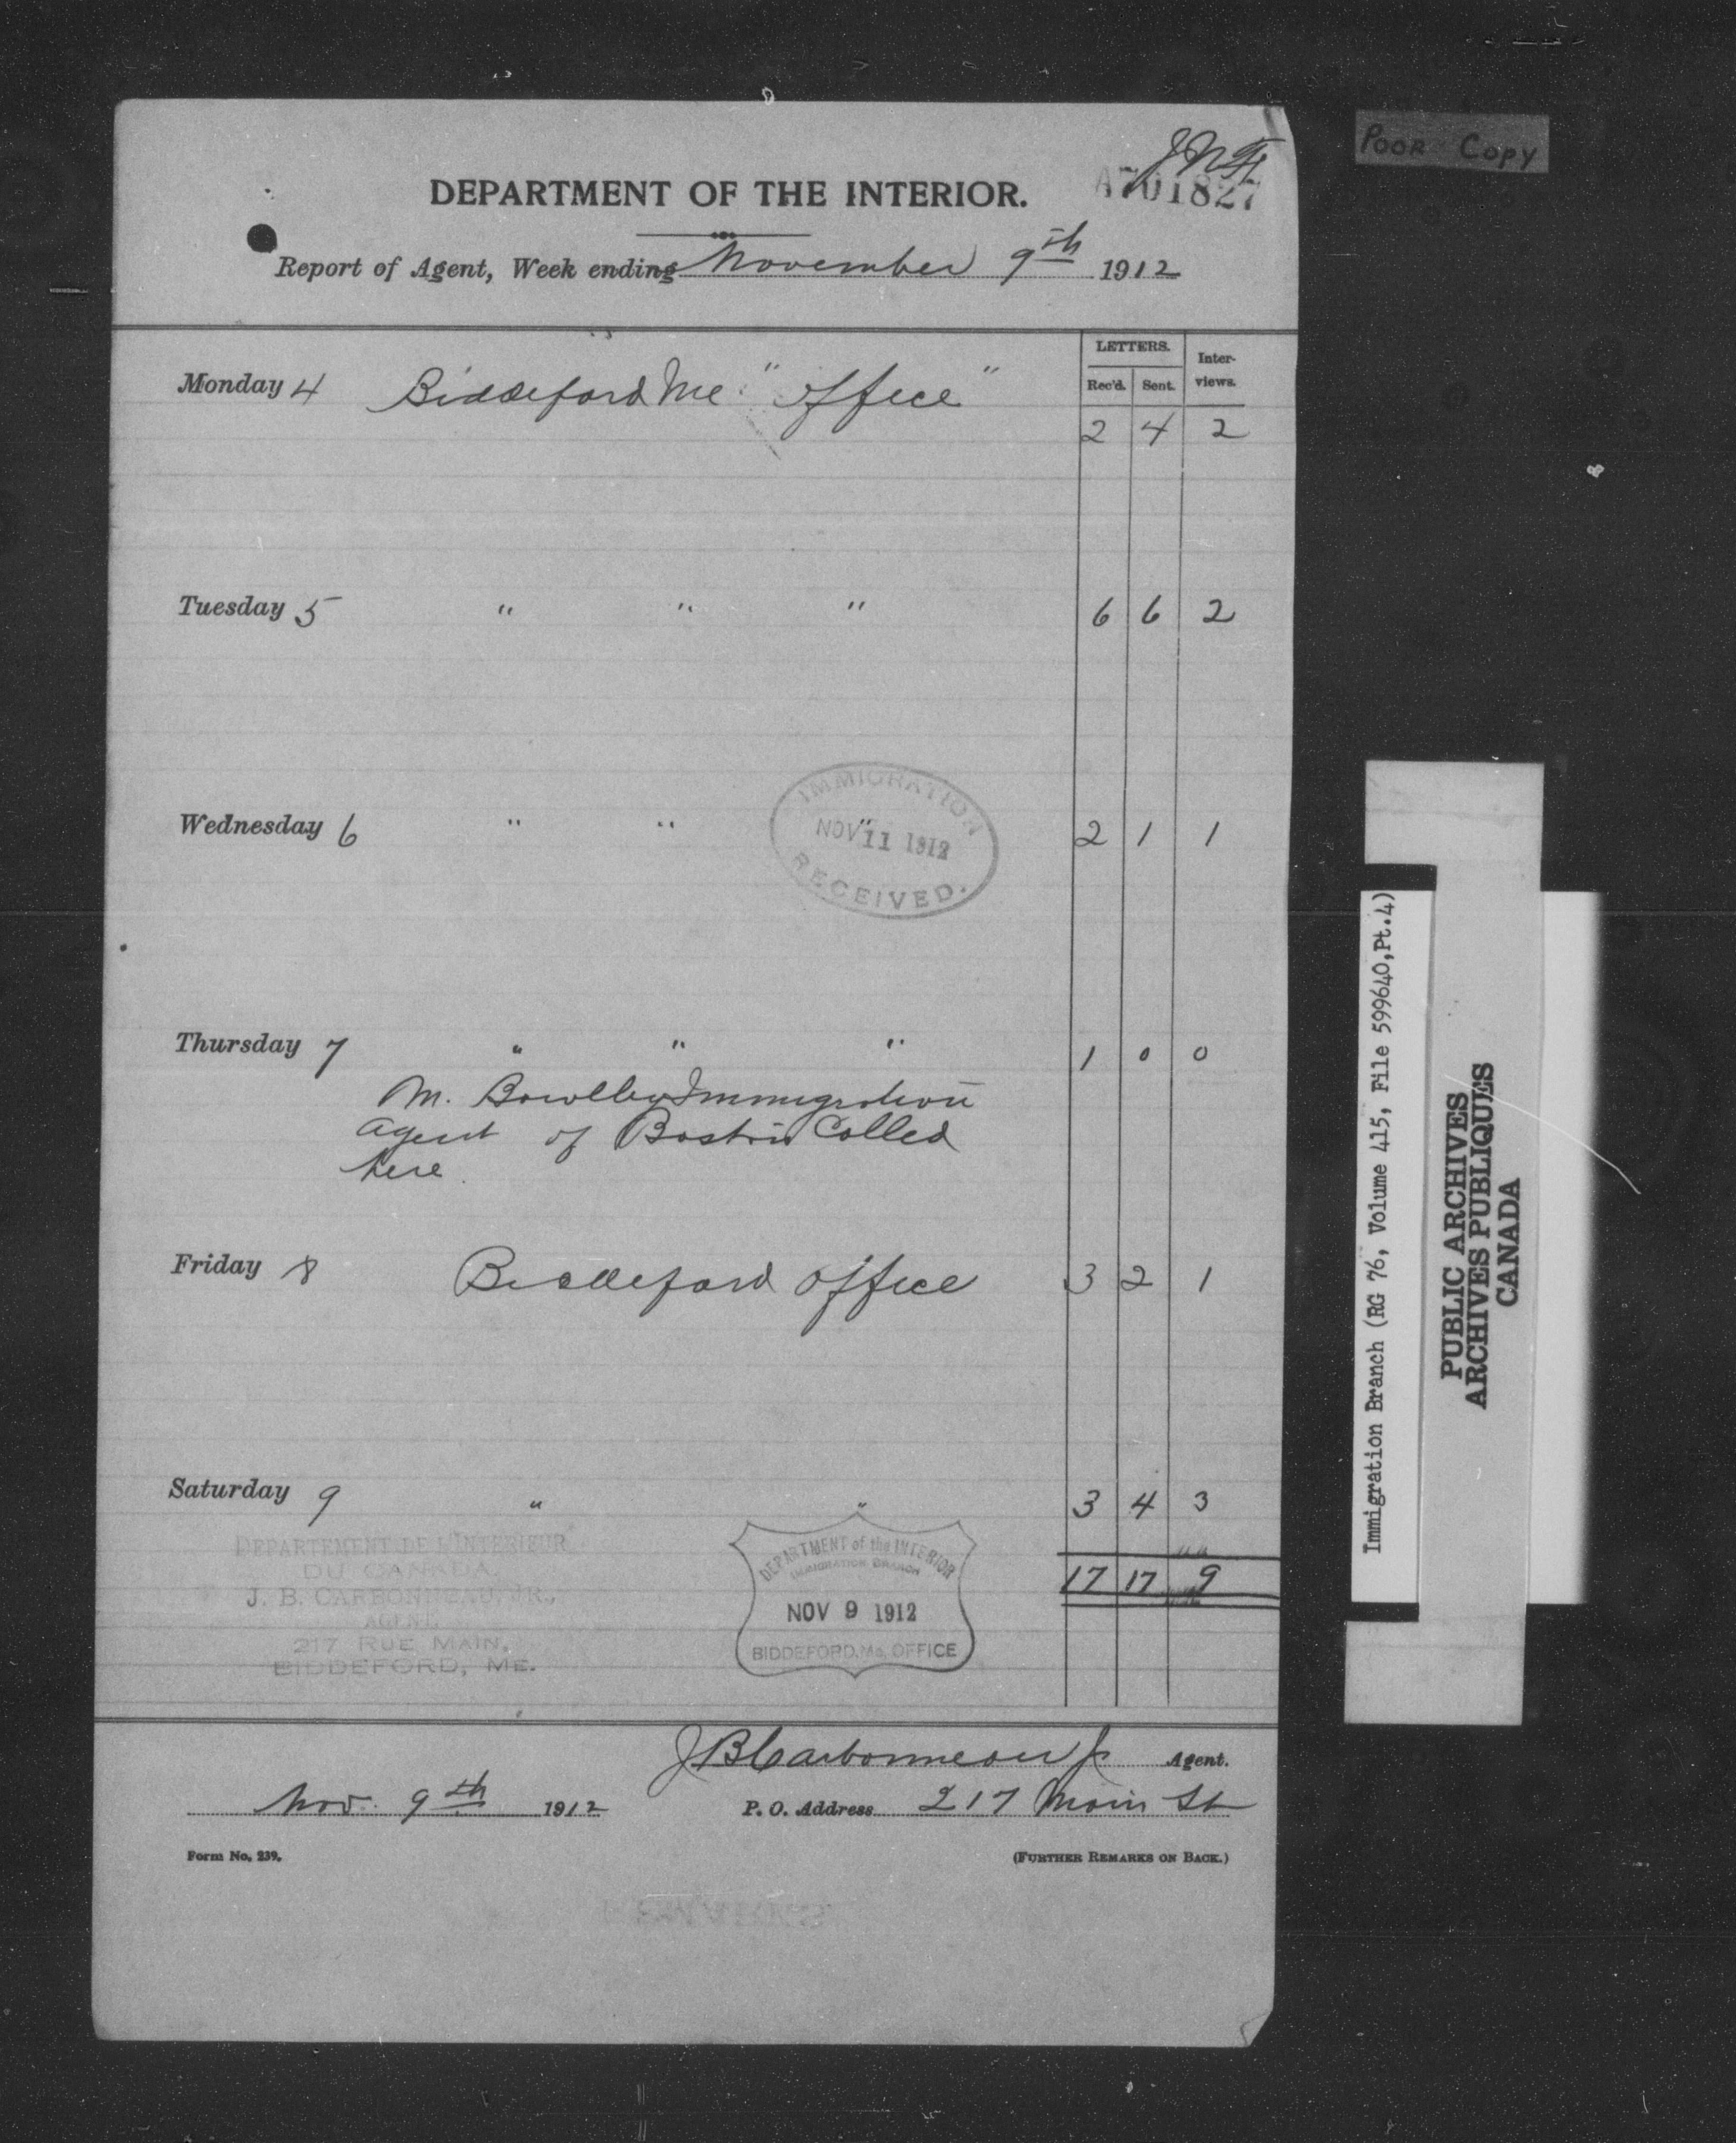 POOR COPY
J N H
A701827
DEPARTMENT OF THE INTERIOR.
Report of Agent, Week ending November 9th 1912
LETTERS. Inter-views.
Rec'd. Sent.
Monday 4 Biddeford Me. "Office"
2 4 2
Tuesday 5 " " " 6 6 2
Wednesday 6 " " " 2 1 1
IMMIGRATION
NOV 11 1912
RECEIVED.
Thursday 7 " " " 1 0 0
M. Bowlby Immigration
agent of Boston Called
here
Friday 8 Biddeford Office 3 2 1
Saturday 9 " " 3 4 3
17 17 9
DEPARTEMENT DE L'INTERIEUR
DU CANADA.
J. B. CARBONNEAU, JR.,
AGENT.
217 RUE MAIN,
BIDDEFORD, ME.
DEPARTMENT of the INTERIOR
IMMIGRATION BRANCH
NOV 9 1912
BIDDEFORD, Me. OFFICE
J B Carbonneau Jr Agent.
Nov. 9th 1912 P. O. Address 217 Main St
Form No. 239. (FURTHER REMARKS ON BACK.)
Immigration Branch (RG 76, Volume 415, File 599640,Pt.4)
PUBLIC ARCHIVES
ARCHIVES PUBLIQUES
CANADA